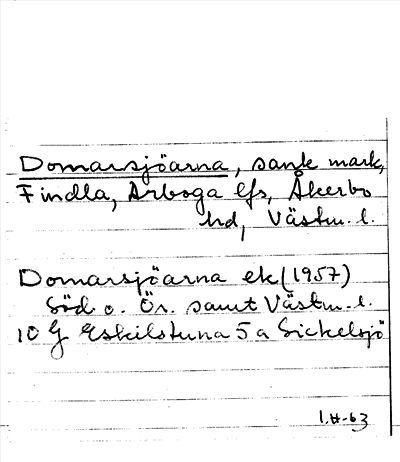 Domarsjöarna, sank mark,
Findla, Arboga lfs, Åkerbo
hd, Västm. l.
Domarsjöarna ek (1957)
Söd o. Ör. samt Västm. l.
10 G Eskilstuna 5 a Sickelsjö